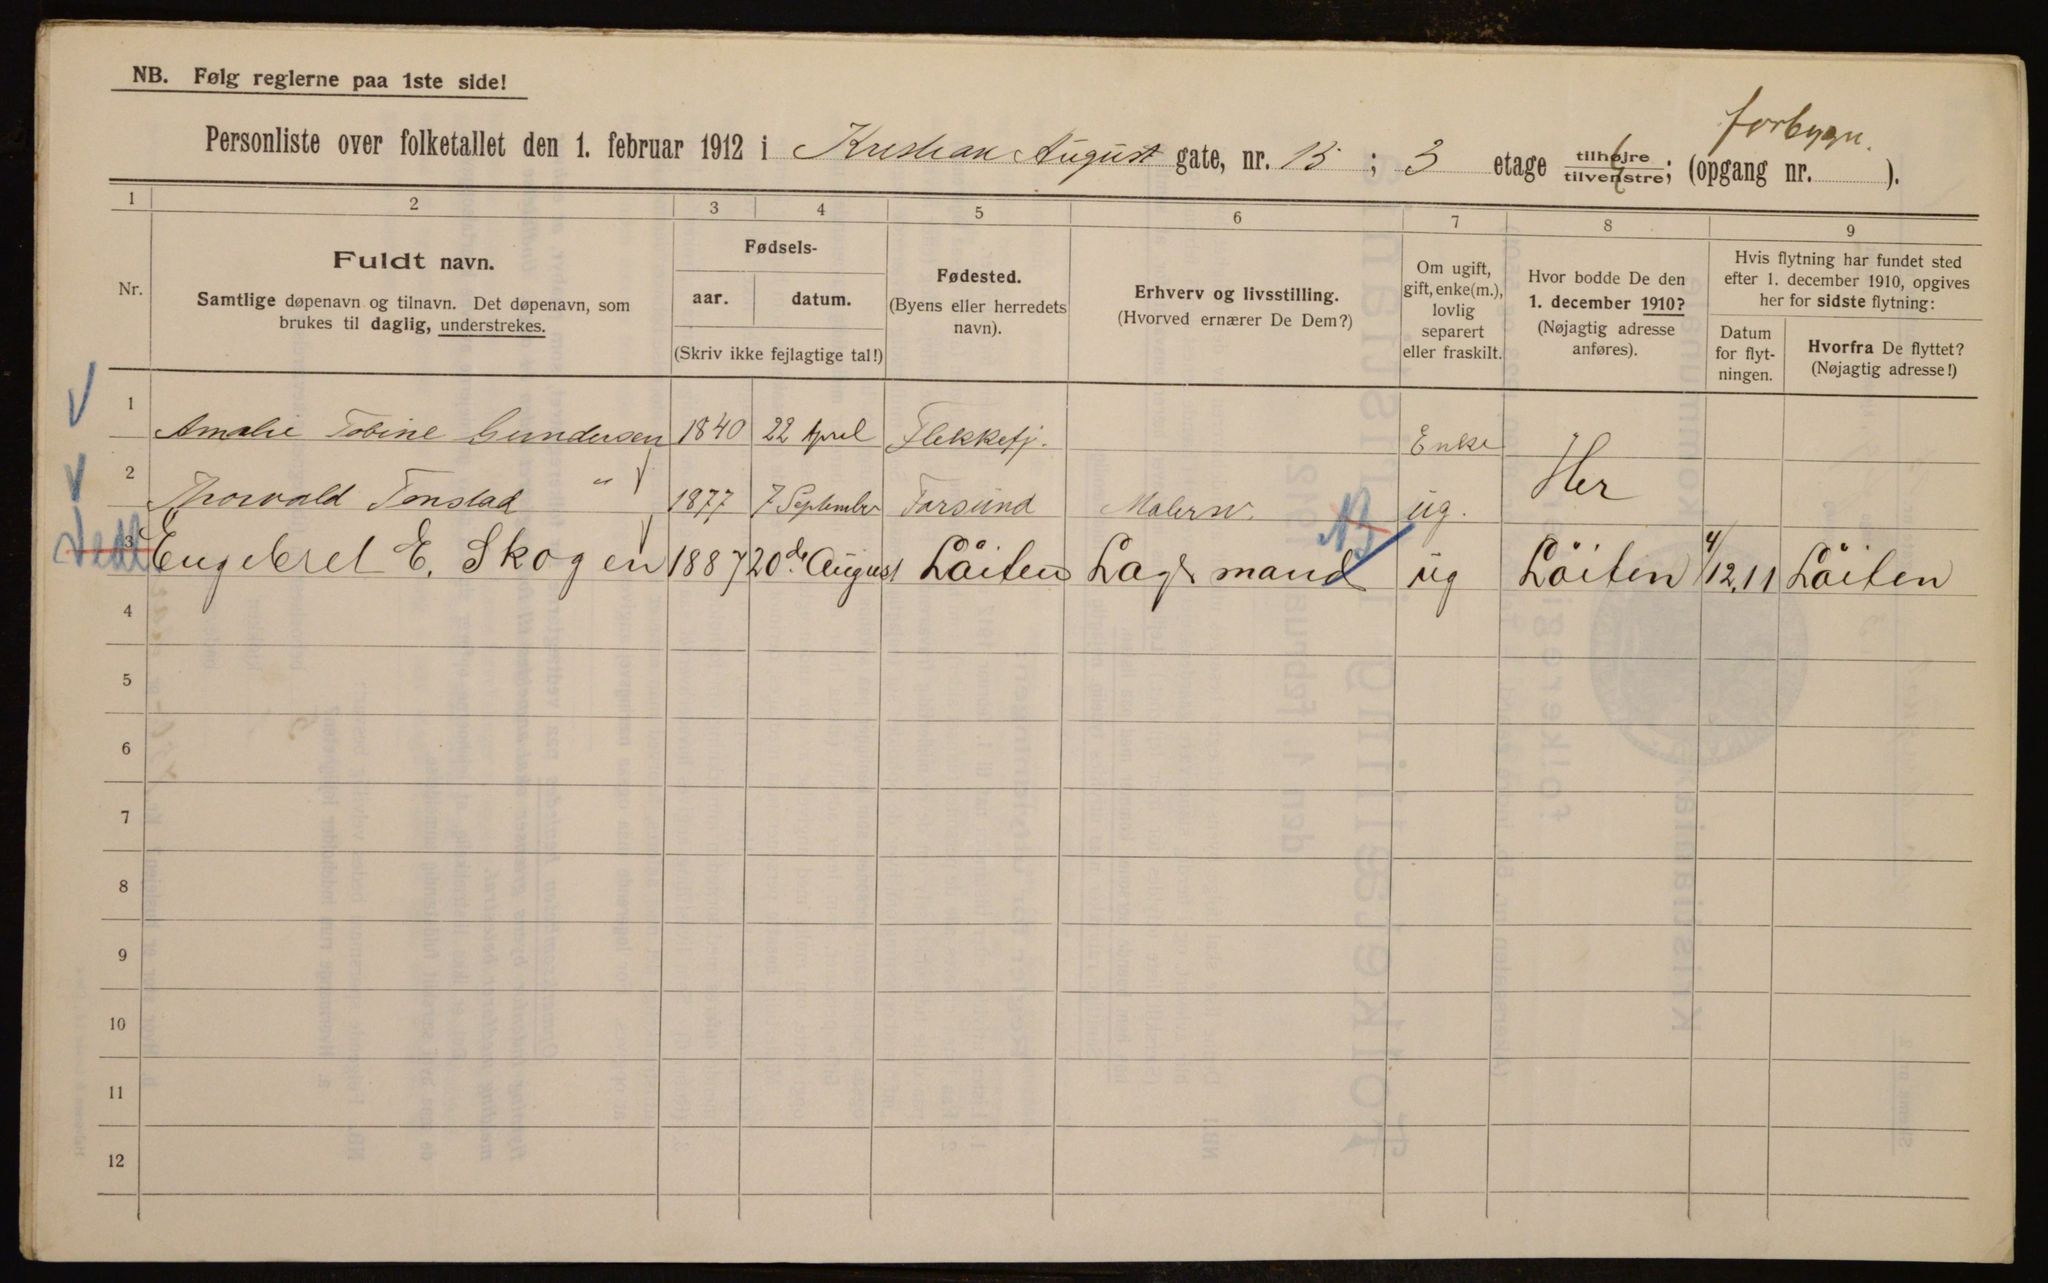 NB. Følg reglerne paa 1ste side!
forbygn.
Personliste over folketallet den 1. februar 1912 i Kristian August gate, nr. 13 ; 3 etage tilhøjre tilvenstre; (opgang nr. ).
1 2 3 4 5 6 7 8 9
Nr.
Fuldt navn.
Samtlige døpenavn og tilnavn. Det døpenavn, som
brukes til daglig, understrekes.
Fødsels-
aar. datum.
(Skriv ikke fejlagtige tal!)
Fødested.
(Byens eller herredets
navn).
Erhverv og livsstilling.
(Hvorved ernærer De Dem?)
Om ugift,
gift, enke(m.),
lovlig
separert
eller fraskilt.
Hvor bodde De den
1. december 1910?
(Nøjagtig adresse
anføres).
Hvis flytning har fundet sted
efter 1. december 1910, opgives
her for sidste flytning:
Datum
for flyt-
ningen.
Hvorfra De flyttet?
(Nøjagtig adresse!)
1 Amalie Tobine Gundersen 1840 22 April Flekkefj. Enke Her
2 Thorvald Tonstad " 1877 7 September Farsund Malersv. ug.
3 Engebret E. Skogen 1887 20de August Löiten Lagermand ug Löiten 4/12.11 Löiten
4
5
6
7
8
9
10
11
12